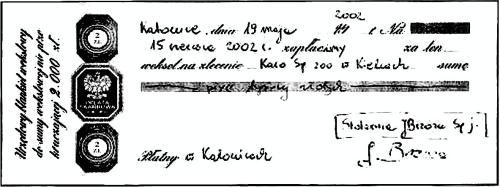 Urzędowy blankiet wekslowy
do sumy wekslowej nie przekraczającej 2.000 zł.
2 ZŁ
OPŁATA SKARBOWA
2 ZŁ
2002
Katowice, dnia 19 maja 19 r. Na
15 czerwca 2002 r. zapłacimy za ten
weksel na zlecenie Karo Sp zoo w Kielcach sumę
pięć tysięcy złotych
Stolarnia Brzoza Sp j.
J. Brzoza
Płatny w Katowicach